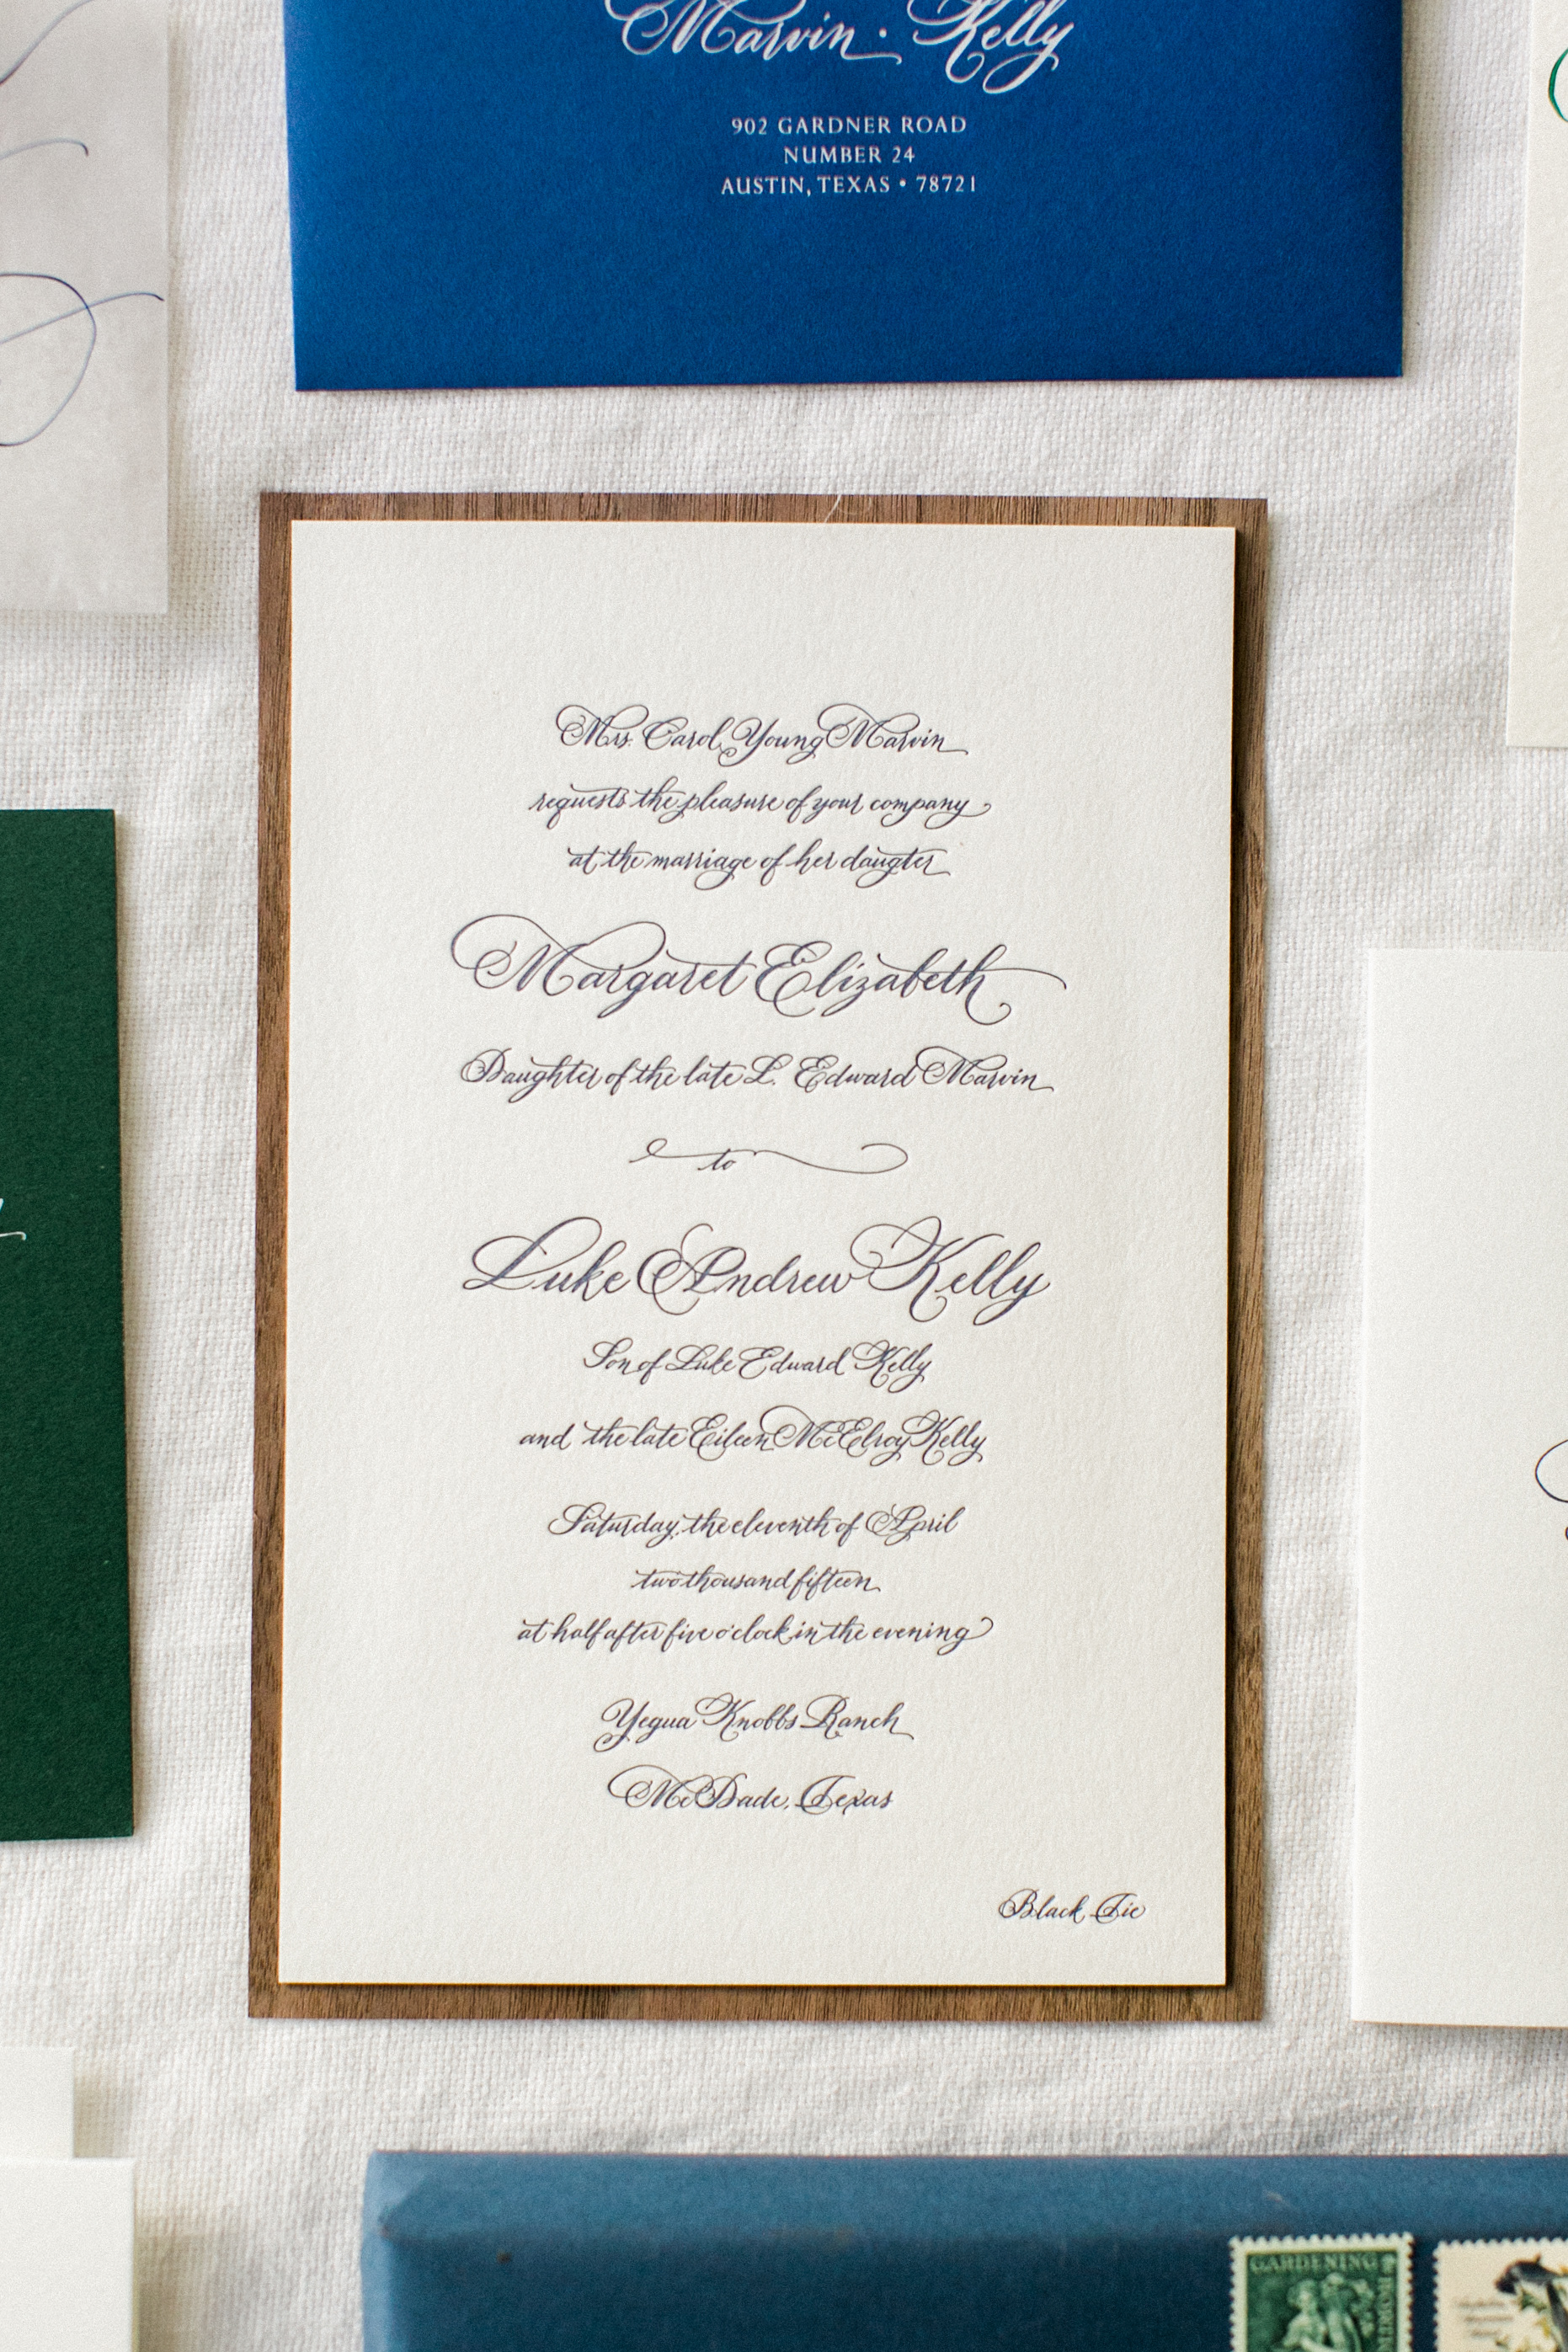 Marvin · Kelly
902 GARDNER ROAD
NUMBER 24
AUSTIN, TEXAS • 78721
Mrs. Carol Young Marvin
requests the pleasure of your company
at the marriage of her daugter
Margaret Elizabeth
Daughter of the late L. Edward Marvin
to
Luke Andrew Kelly
Son of Luke Edward Kelly
and the late Eileen McElroy Kelly
Saturday, the eleventh of April
two thousand fifteen
at half after five o'clock in the evening
Yegua Knobbs Ranch
McDade, Texas
Black Tie
GARDENING